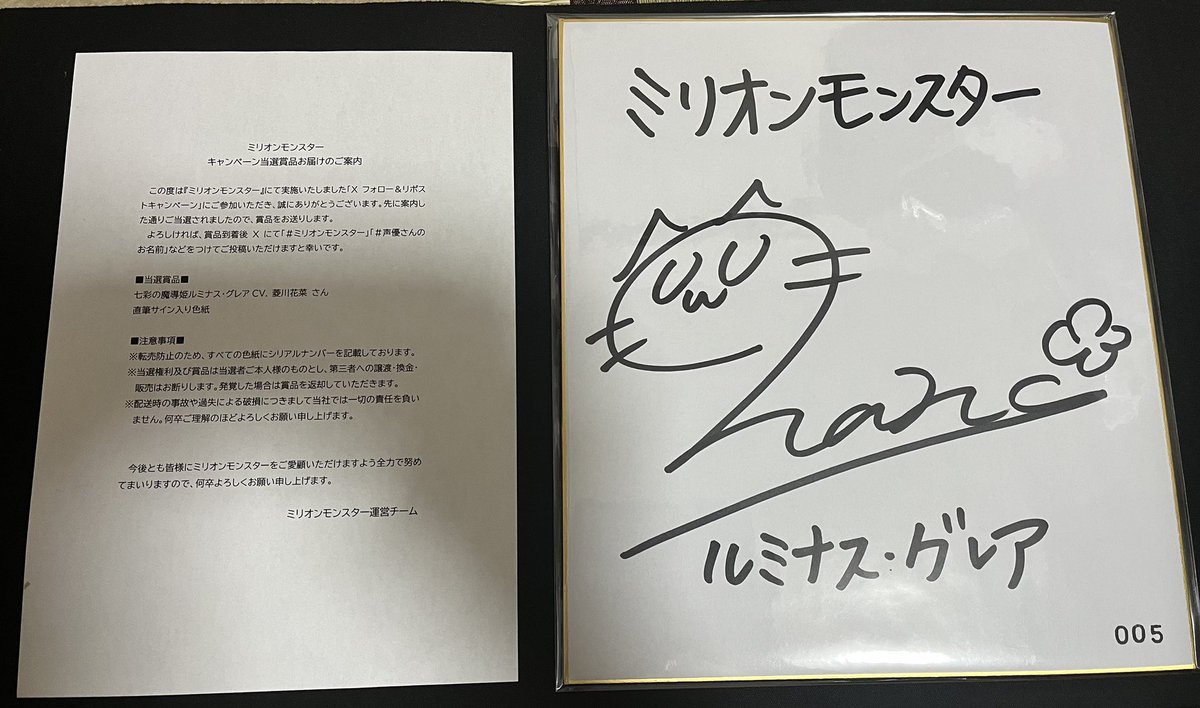 ミリオンモンスター
キャンペーン当選賞品お届けのご案内
この度は『ミリオンモンスター』にて実施いたしました「X フォロー&リポス
トキャンペーン」にご参加いただき、誠にありがとうございます。先に案内し
た通りご当選されましたので、賞品をお送りします。
よろしければ、賞品到着後 X にて「#ミリオンモンスター」「#声優さんの
お名前」などをつけてご投稿いただけますと幸いです。
■当選賞品■
七彩の魔導姫ルミナス・グレアCV. 菱川花菜 さん
直筆サイン入り色紙
■注意事項■
※転売防止のため、すべての色紙にシリアルナンバーを記載しております。
※当選権利及び賞品は当選者ご本人様のものとし、第三者への譲渡・換金・
販売はお断りします。発覚した場合は賞品を返却していただきます。
※配送時の事故や過失による破損につきまして当社では一切の責任を負い
ません。何卒ご理解のほどよろしくお願い申し上げます。
今後とも皆様にミリオンモンスターをご愛顧いただけますよう全力で努め
てまいりますので、何卒よろしくお願い申し上げます。
ミリオンモンスター運営チーム
ミリオンモンスター
ルミナス・グレア
005